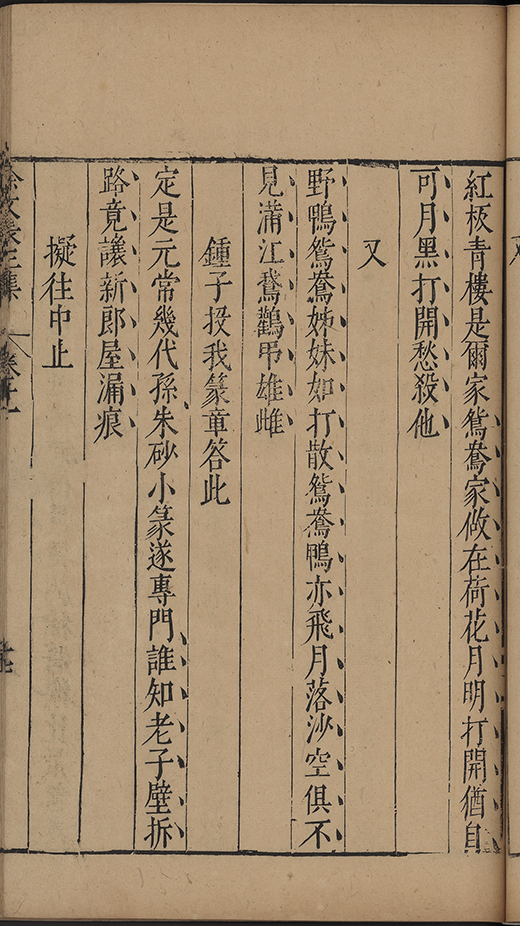 紅板青樓是爾家鴛鴦家做在荷花月明打開猶自
可月黑打開愁殺他
又
野鴨鴛鴦姊妹如打散鴛鴦鴨亦飛月落沙空俱不
見滿江鵞鸛弔雄雌
鍾子投我篆章答此
定是元常幾代孫朱砂小篆遂專門誰知老子壁拆
路竟讓新郎屋漏痕
擬往中止
徐文長三集